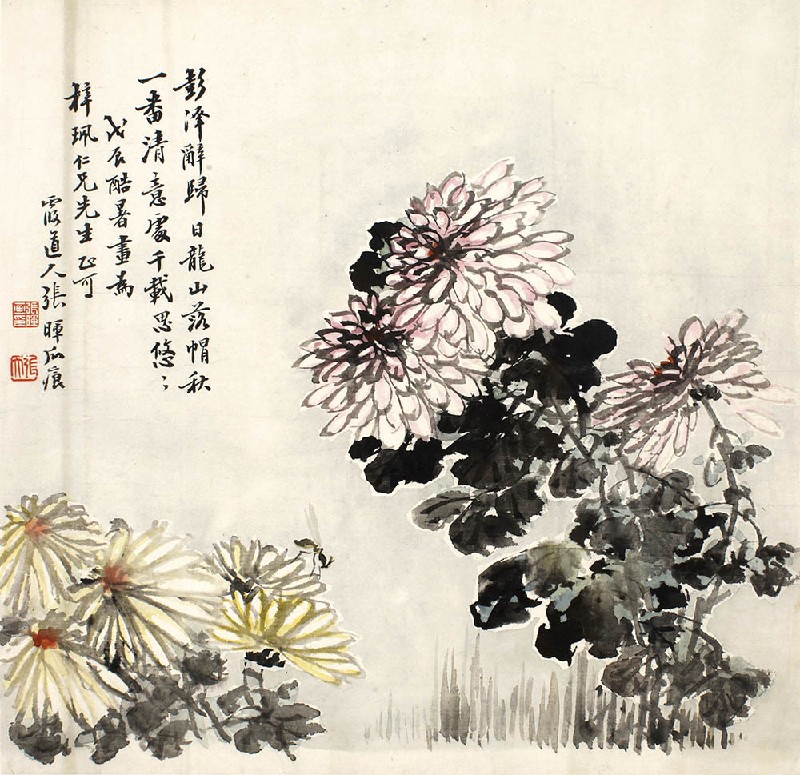 彭泽辭歸日龍山落帽秋
一番清意處千載思悠〻
戊辰酷暑畫為
梓珮仁兄先生正可
霞道人張暉瓜痕